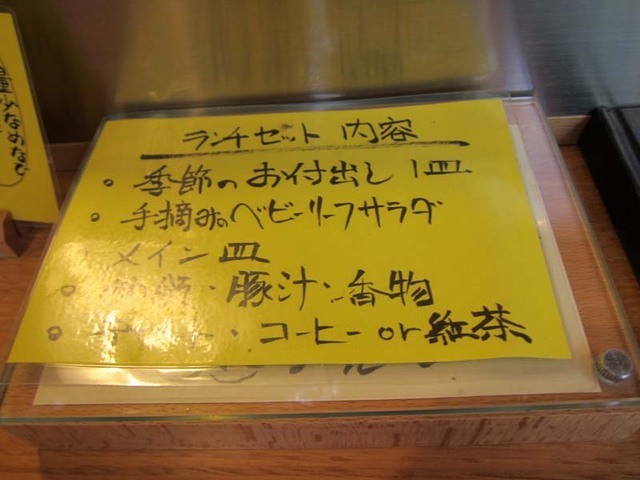 ランチセット 内容
・季節のお付出し 1皿
・手摘みのベビーリーフサラダ
・メイン皿
・豚汁・香物
・コーヒー or 紅茶
量少なめなど